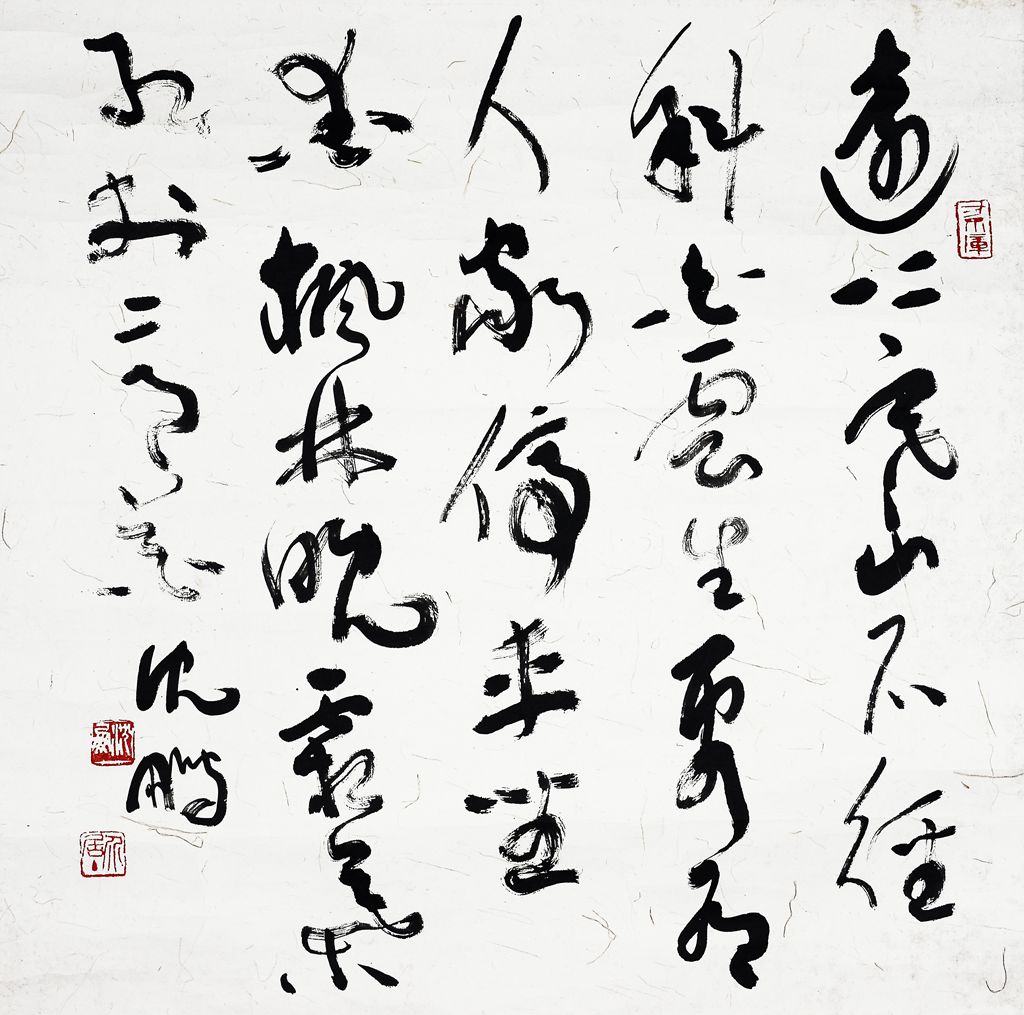 遠上寒山石徑
斜白雲生處有
人家停車坐
愛楓林晚霜葉
紅於二月花
沈鵬
沈鵬
介居